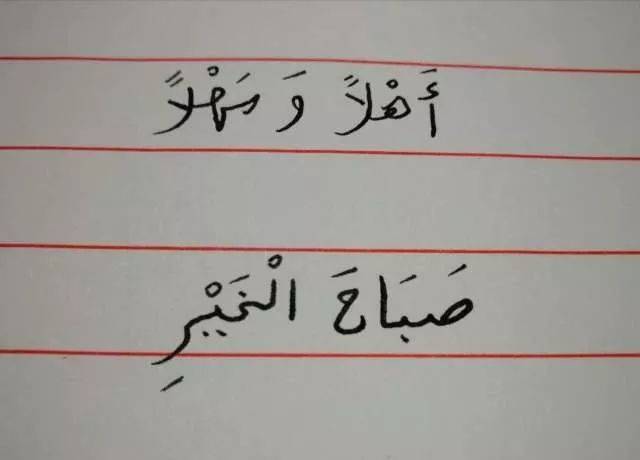 أَهْلاً وَ سَهْلاً
صَبَاحَ الْخَيْرِ